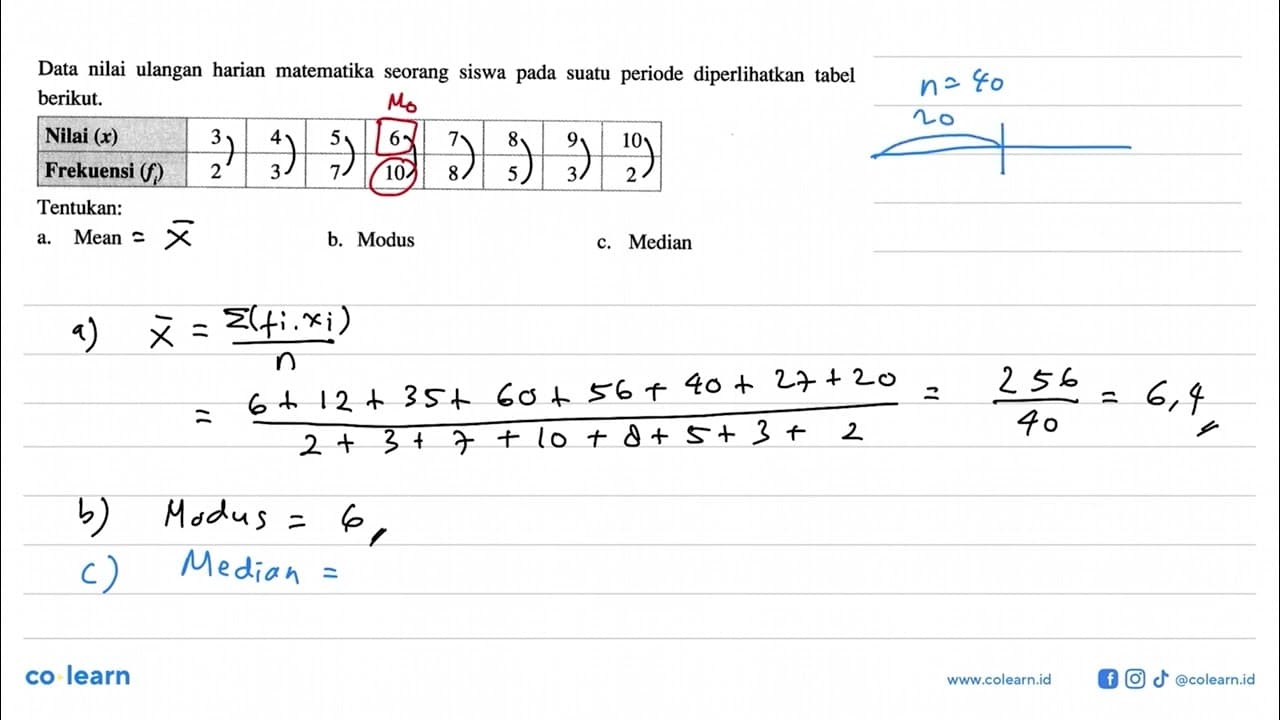 Data nilai ulangan harian matematika seorang siswa pada suatu periode diperlihatkan tabel
berikut.
Mo
Nilai (x) 3 4 5 6 7 8 9 10
Frekuensi (fi) 2 3 7 10 8 5 3 2
Tentukan:
a. Mean = x̄ b. Modus c. Median
n = 40
20
a) x̄ = Σ(fi.xi) / n
= 6 + 12 + 35 + 60 + 56 + 40 + 27 + 20 / 2 + 3 + 7 + 10 + 8 + 5 + 3 + 2 = 256 / 40 = 6,4
b) Modus = 6,
c) Median =
co learn
www.colearn.id
@colearn.id